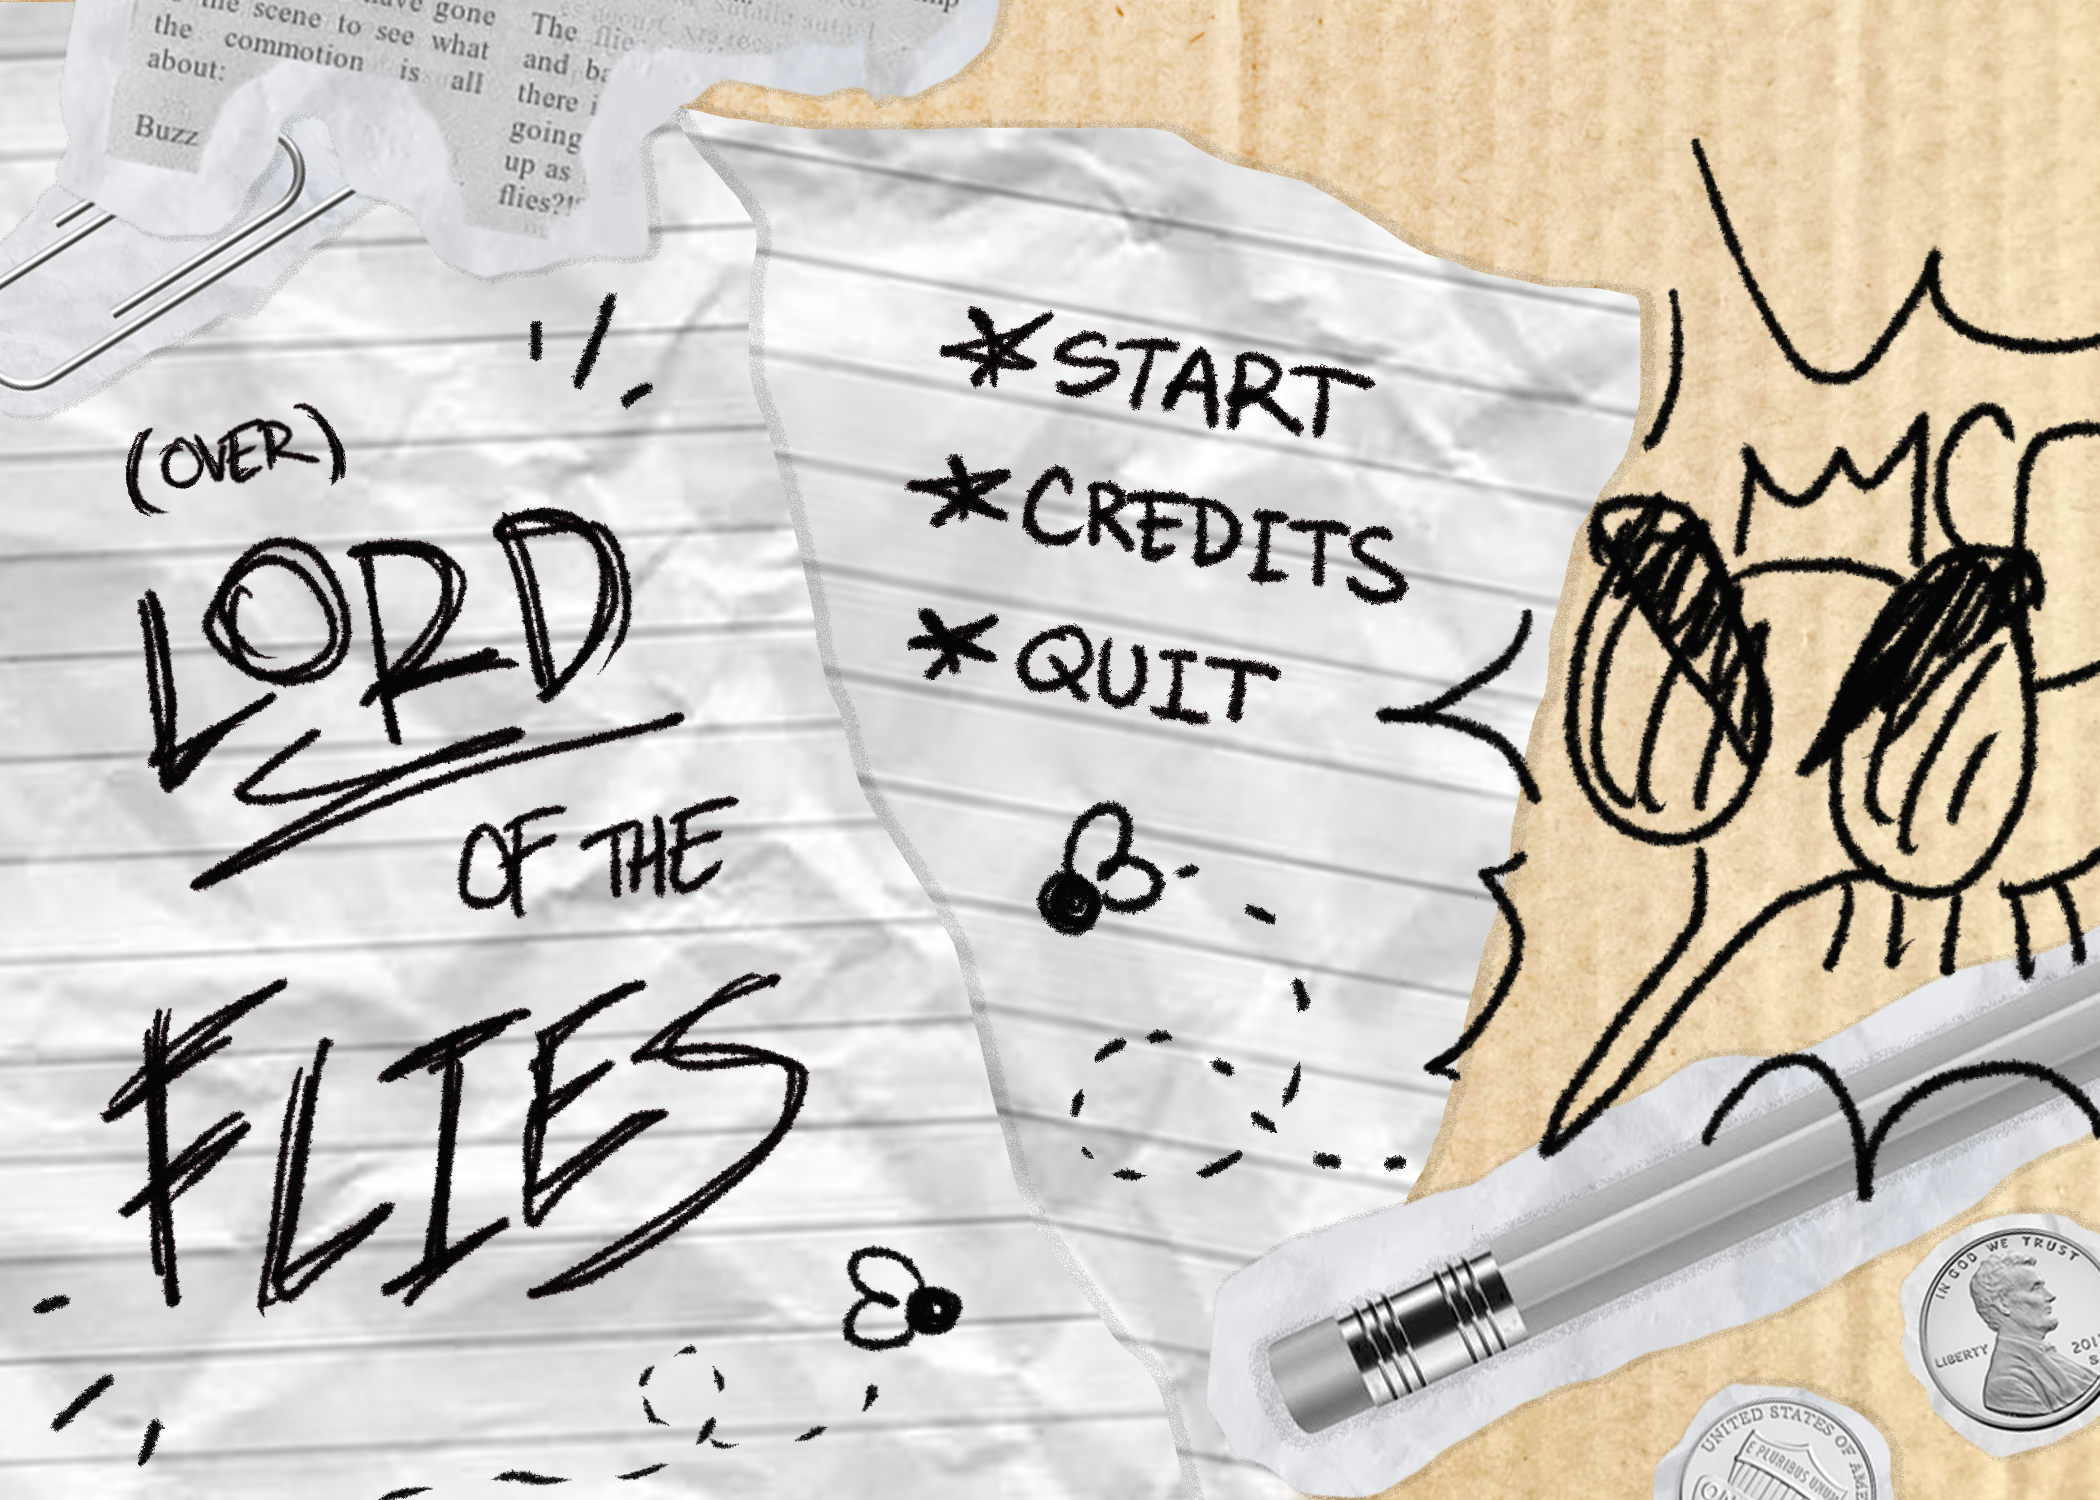 have gone
the scene to see what
the commotion is all
about:
Buzz
The flies
and ba
there i
going
up as
flies?!"
(OVER)
LORD
OF THE
FLIES
*START
*CREDITS
*QUIT
IN GOD WE TRUST
LIBERTY
201
S
UNITED STATES OF AME
E PLURIBUS UNUM